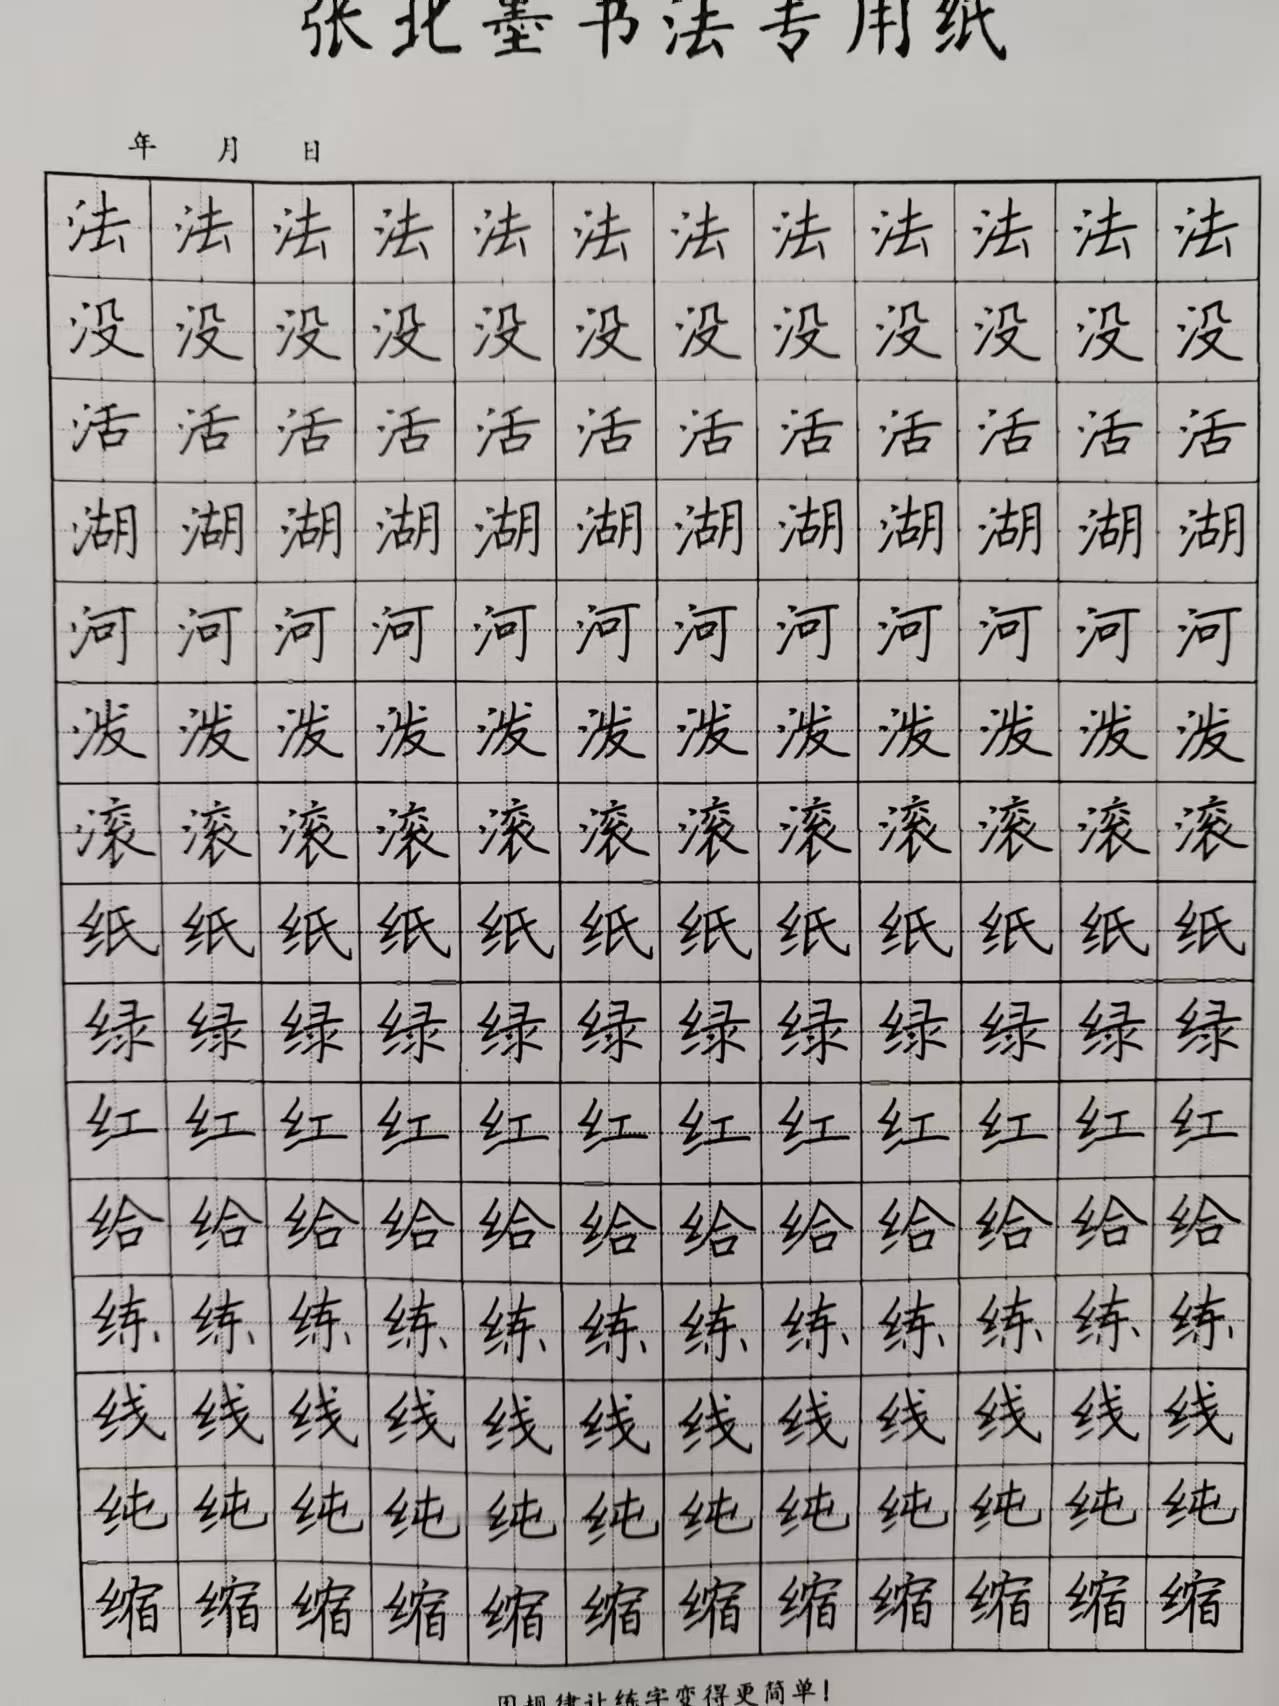 张北墨书法专用纸
年 月 日
法 法 法 法 法 法 法 法 法 法 法 法
没 没 没 没 没 没 没 没 没 没 没 没
活 活 活 活 活 活 活 活 活 活 活 活
湖 湖 湖 湖 湖 湖 湖 湖 湖 湖 湖 湖
河 河 河 河 河 河 河 河 河 河 河 河
泼 泼 泼 泼 泼 泼 泼 泼 泼 泼 泼 泼
滚 滚 滚 滚 滚 滚 滚 滚 滚 滚 滚 滚
纸 纸 纸 纸 纸 纸 纸 纸 纸 纸 纸 纸
绿 绿 绿 绿 绿 绿 绿 绿 绿 绿 绿 绿
红 红 红 红 红 红 红 红 红 红 红 红
给 给 给 给 给 给 给 给 给 给 给 给
练 练 练 练 练 练 练 练 练 练 练 练
线 线 线 线 线 线 线 线 线 线 线 线
纯 纯 纯 纯 纯 纯 纯 纯 纯 纯 纯 纯
缩 缩 缩 缩 缩 缩 缩 缩 缩 缩 缩 缩
用规律让练字变得更简单!